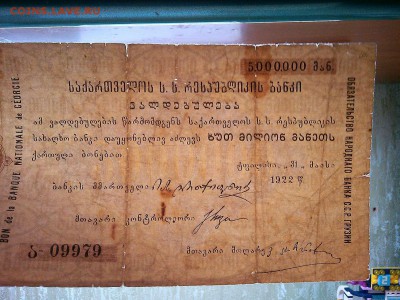 5.000.000 მან.
საქართველოს ს. ს. რესპუბლიკის ბანკი
ვალდებულება
ამ ვალდებულების წარმომდგენს საქართველოს ს.ს. რესპუბლიკის
სახალხო ბანკი დაუყონებლივ აძლევს ხუთ მილიონ მანეთს
ქართული ბონებით
ტფილისი, „31" მაისი
1922 წ.
ბანკის მმართველი
მთავარი კონტროლიორი
ა- 09979
მთავარი მოლარე
BON de la BANQUE NATIONALE de GEORGIE
ОБЯЗАТЕЛЬСТВО НАРОДНАГО БАНКА С.С.Р. ГРУЗИИ